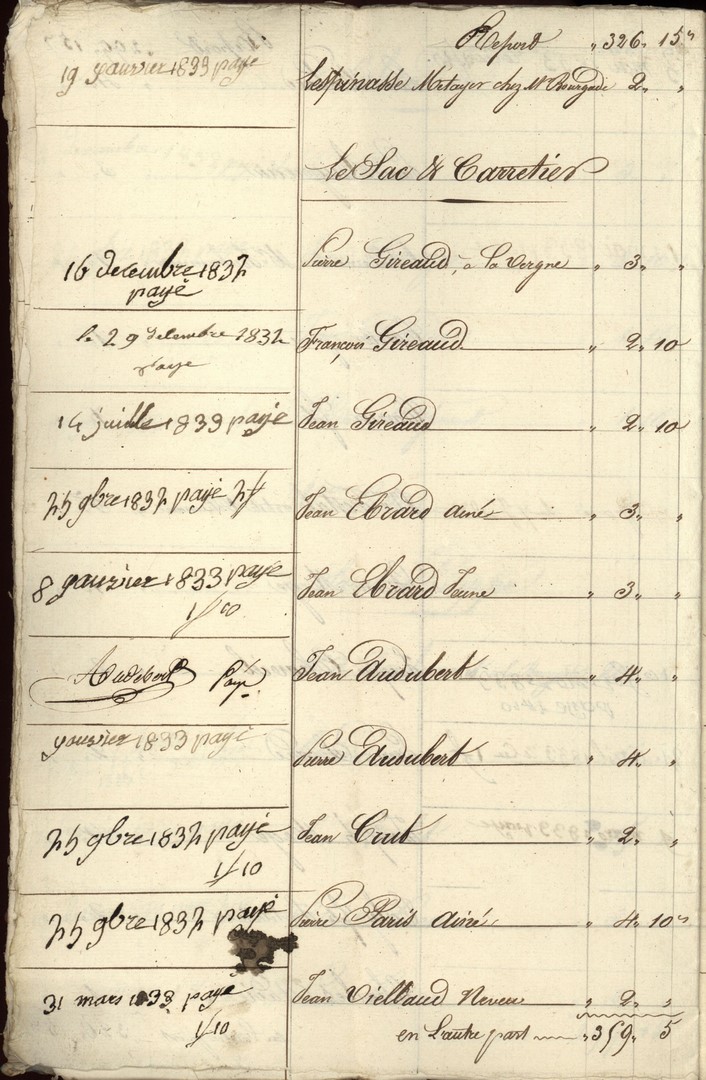 Report " 326 " 15 "
19 janvier 1833 payé
Lespinasse Metayer chez Mr Bourgade 2 " "
Le Sac & Carretier
16 decembre 1832
payé
Pierre Gireaud, a la Vergne " 3 " "
le 29 decembre 1832
paye
François Gireaud " 2 " 10
14 juille 1833 payé
Jean Gireaud " 2 " 10
25 9bre 1832 payé 2f
Jean Ebrard ainé " 3 " "
8 janvier 1833 payé
1f 10
Jean Ebrard Jeune " 3 " "
Audebert Payé
Jean Audubert " 4 " "
janvier 1833 payé
Pierre Audubert " 4 " "
25 9bre 1832 payé
1f 10
Jean Crut " 2 " "
25 9bre 1832 payé
Pierre Paris ainé " 4 " 10 "
31 mars 1833 payé
1f 10
Jean Viellaud Neveu " 2 " "
en L'autre part " 359 " 5